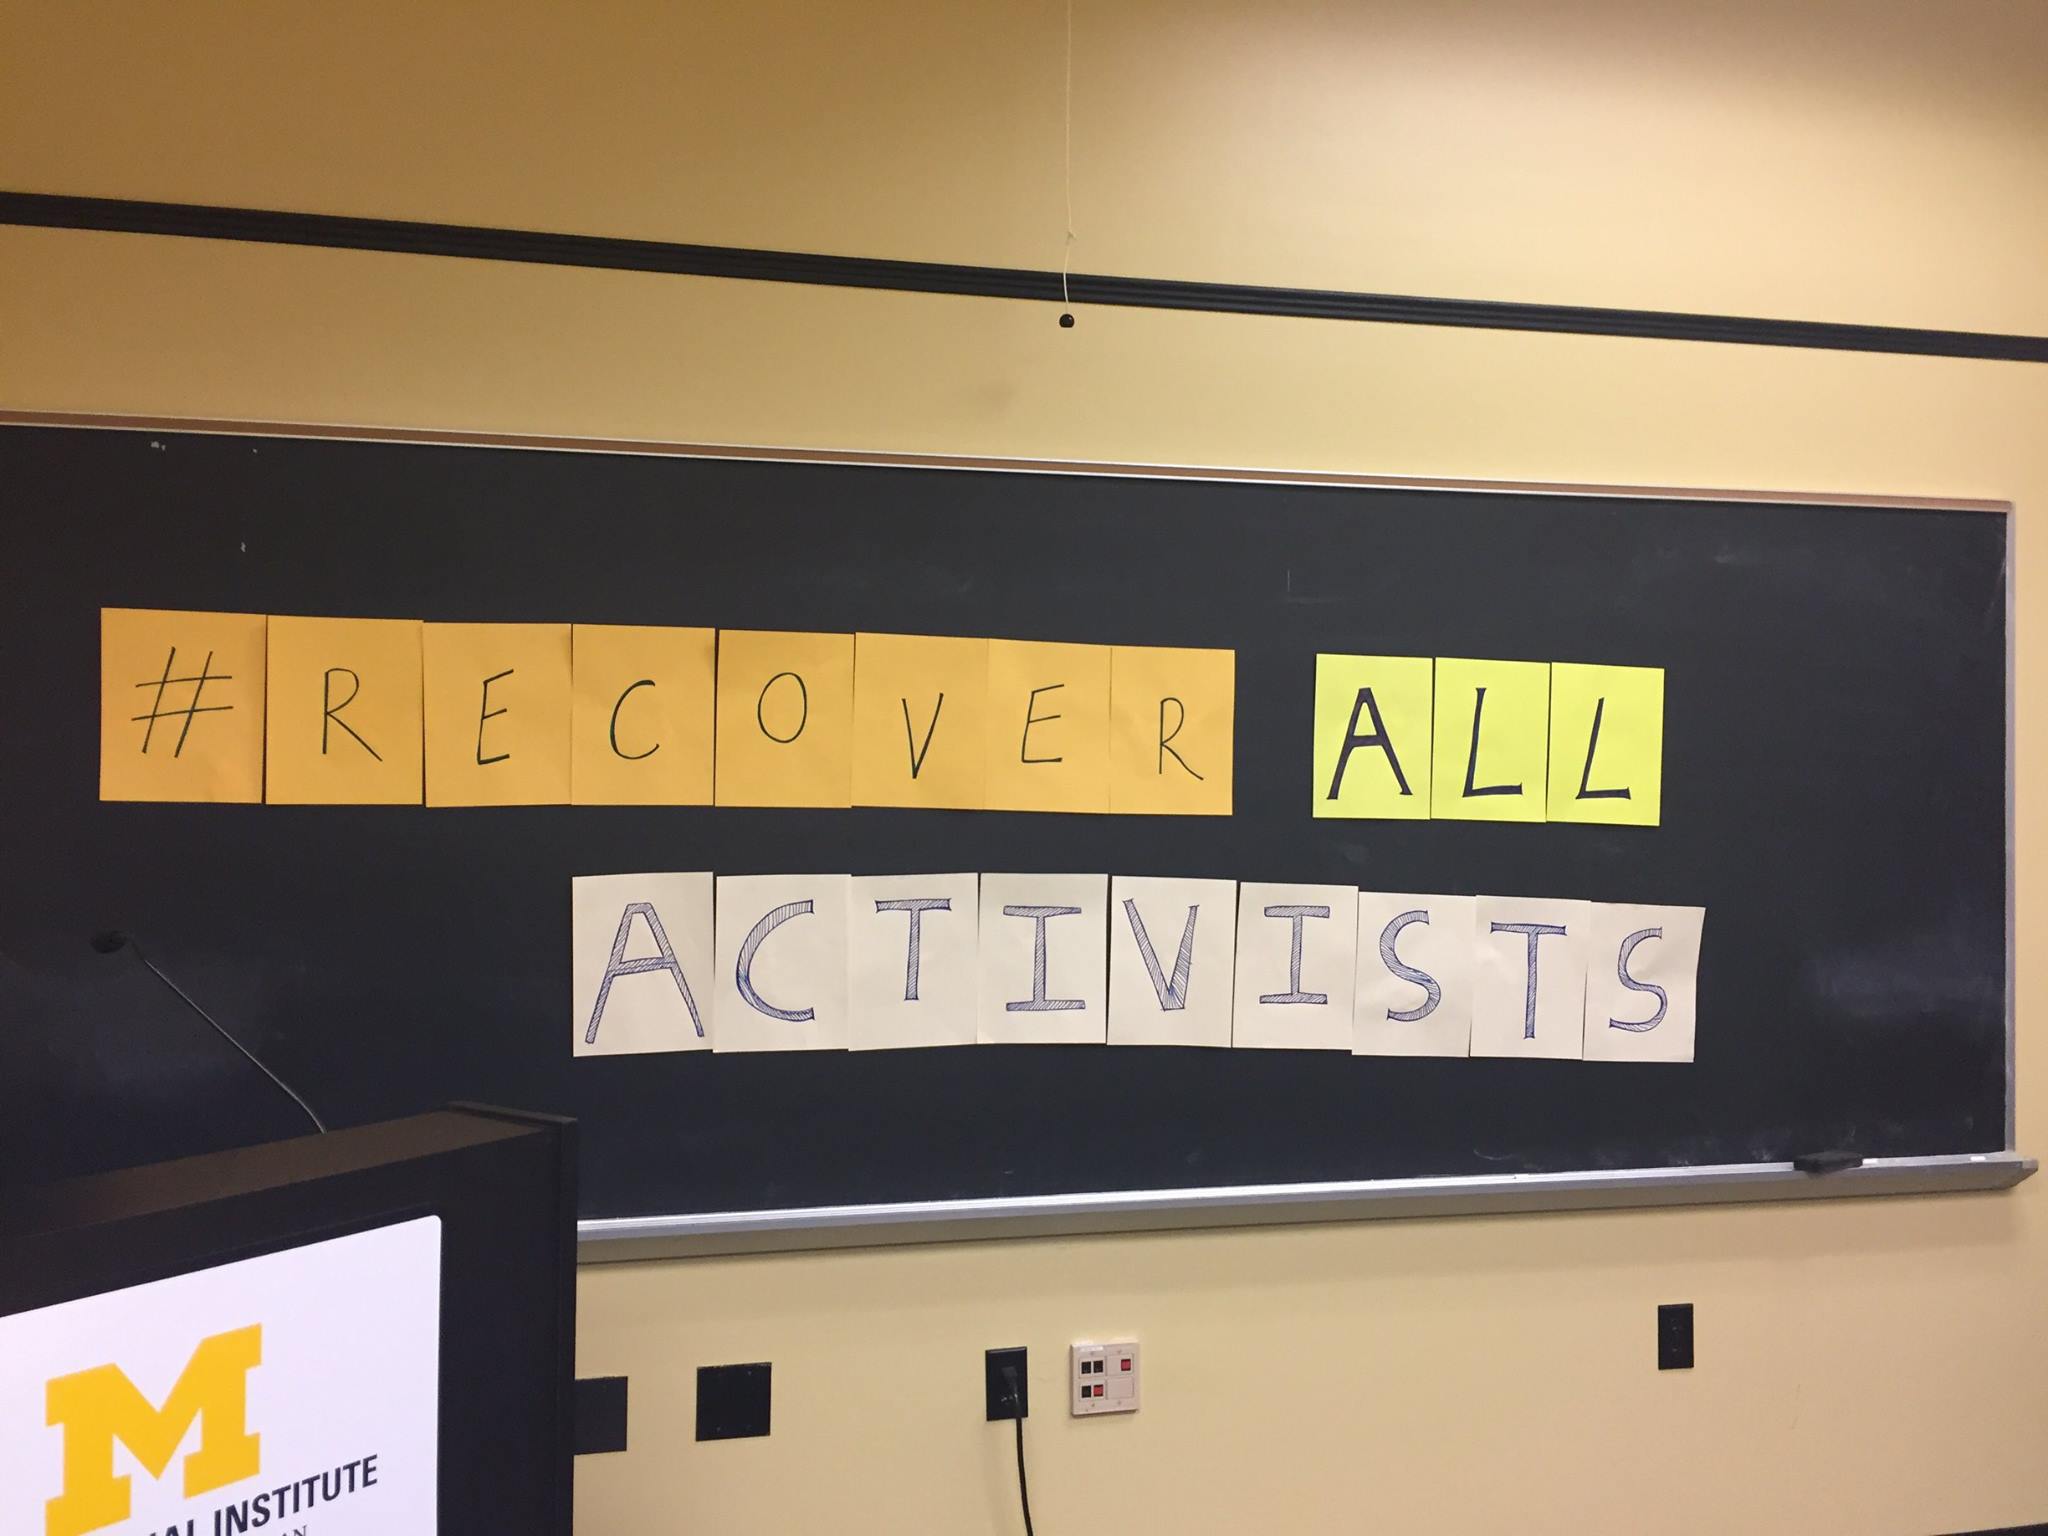 #RECOVER ALL
ACTIVISTS
M
INSTITUTE